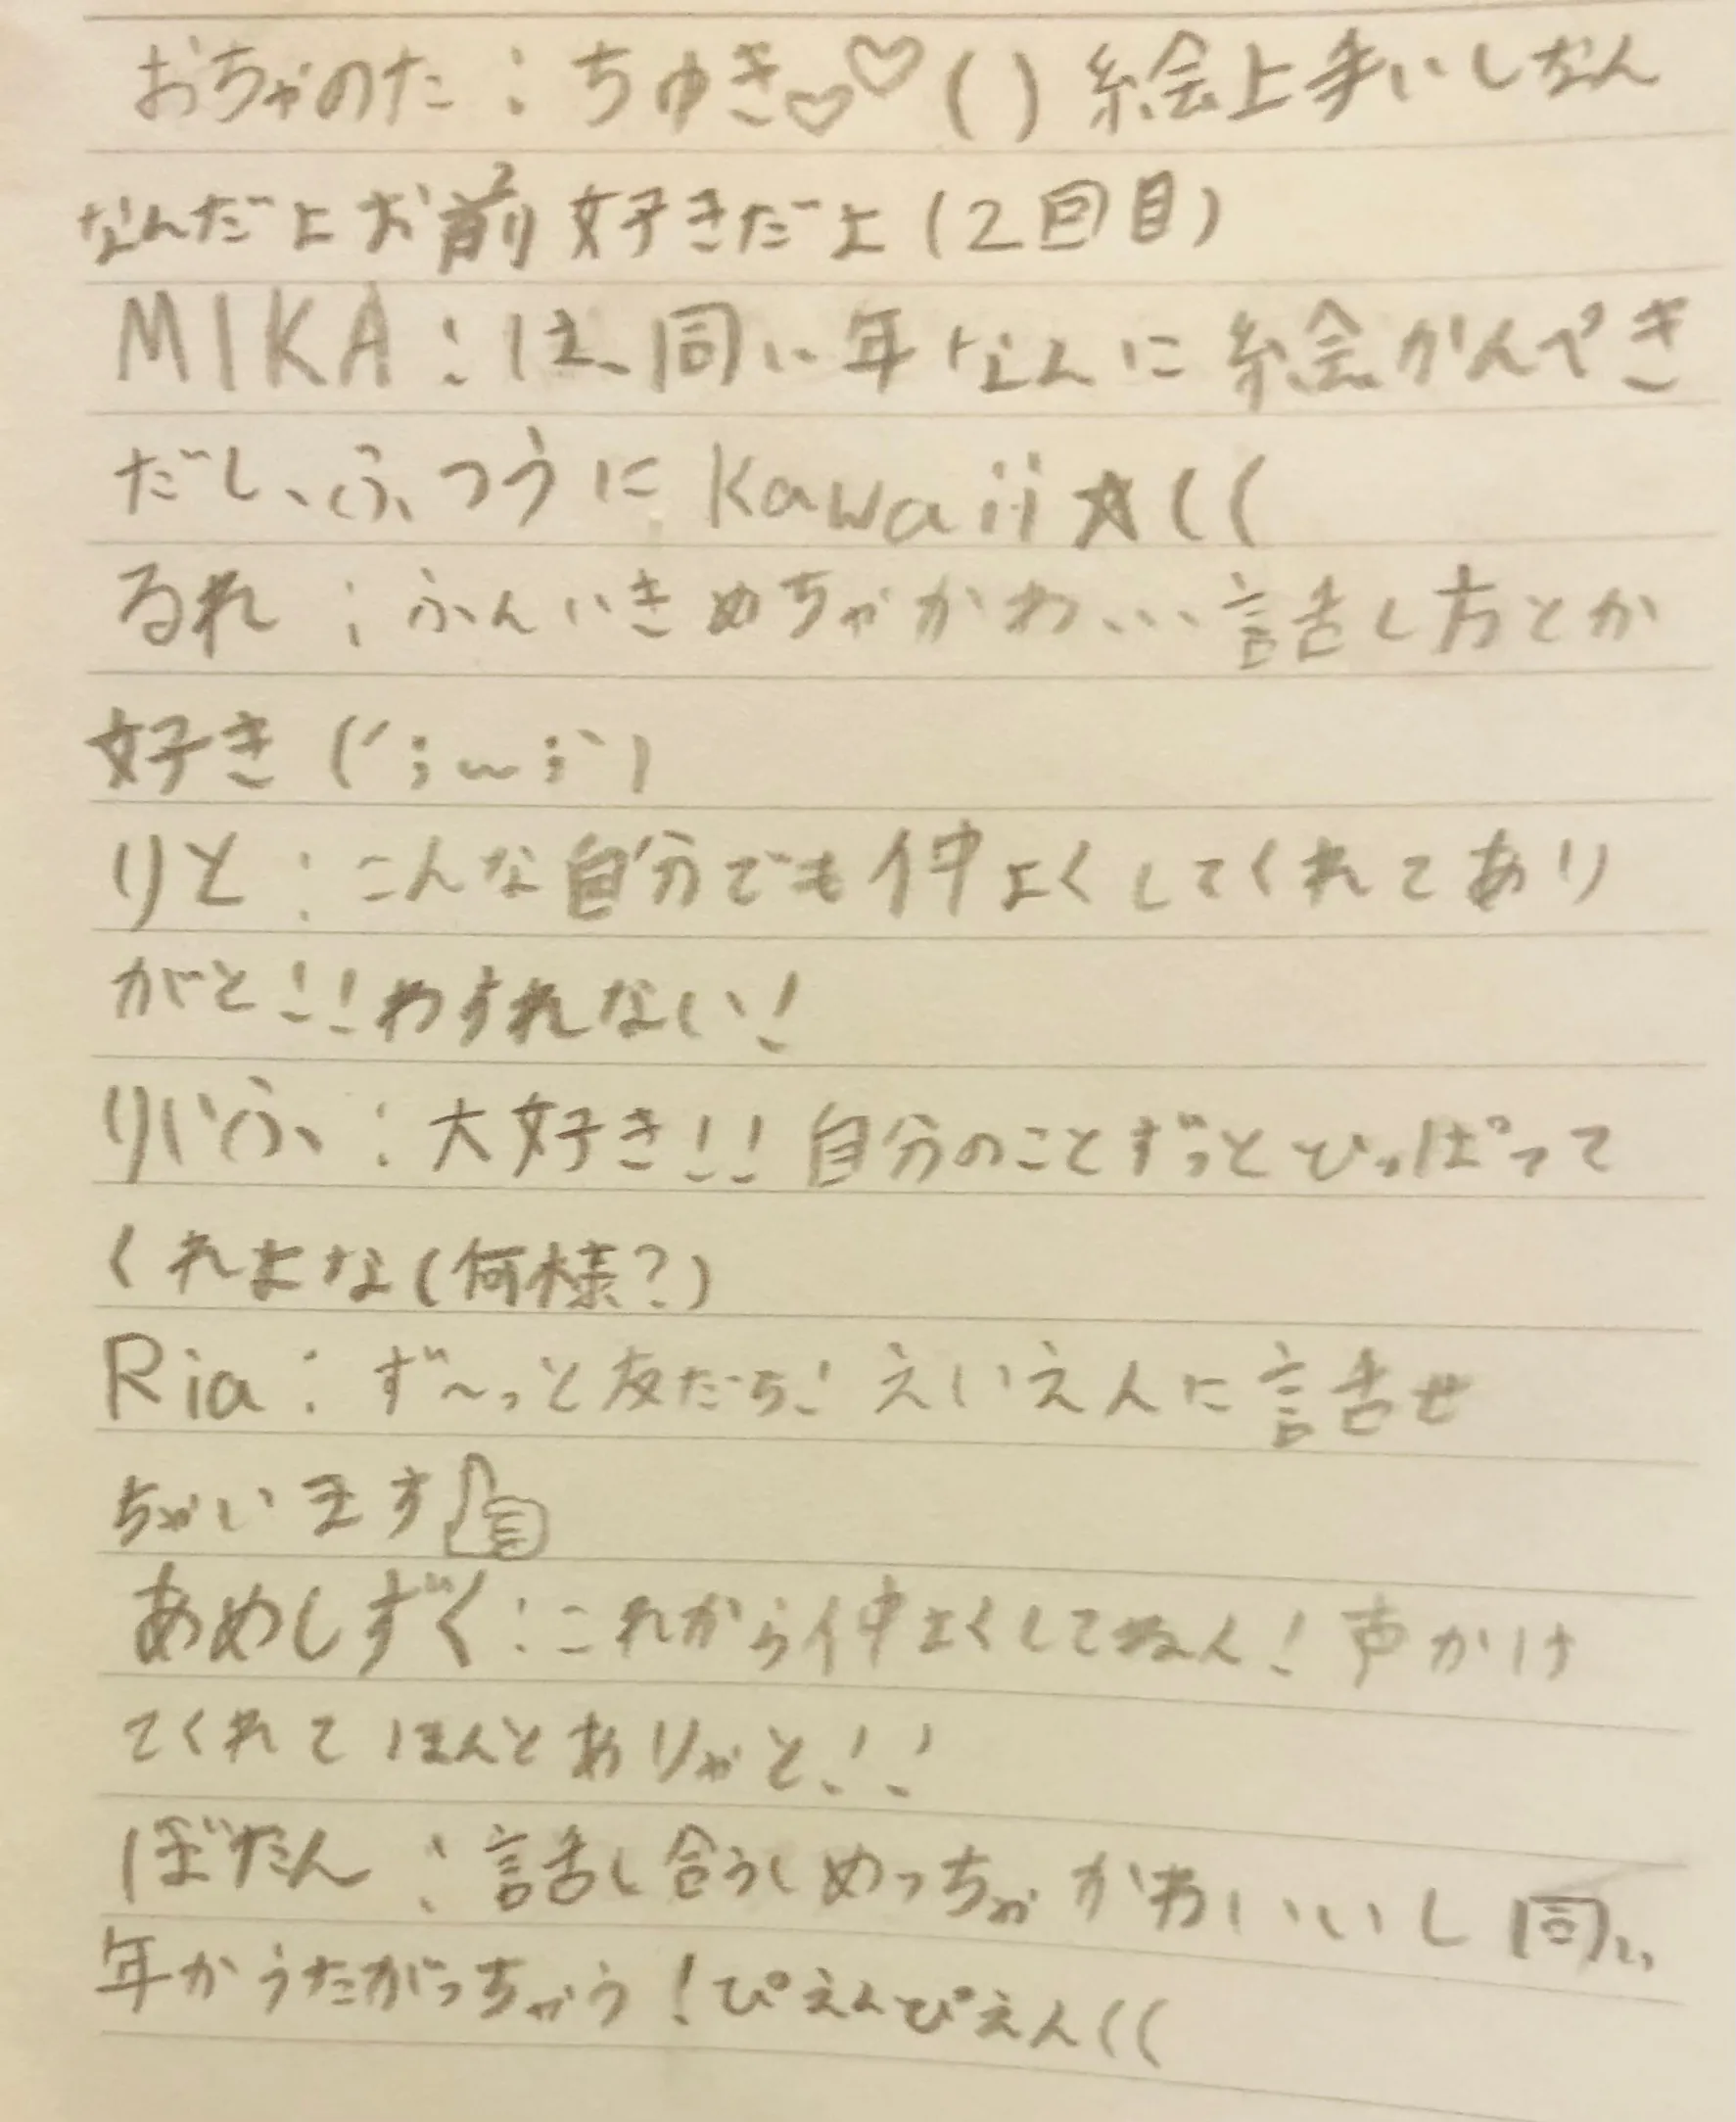 おちゃのた：ちゅき♡♡()絵上手いしなん
なんだよお前好きだよ(2回目)
MIKA：は、同い年なんに絵かんぺき
だし、ふつうにKawaii☆((
るれ：ふんいきめちゃかわ…話し方とか
好き(´；～；｀)
りと：こんな自分でも仲よくしてくれてあり
がと！！わすれない！
りいふ：大好き！！自分のことずっとひっぱって
くれよな(何様？)
Ria：ず～っと友だち！えいえんに話せ
ちゃいます👍
あめしずく：これから仲よくしてねん！声かけ
てくれてほんとありがと！！
ぼたん：話し合うしめっちゃかわいいし同い
年かうたがっちゃう！ぴえんぴえん((